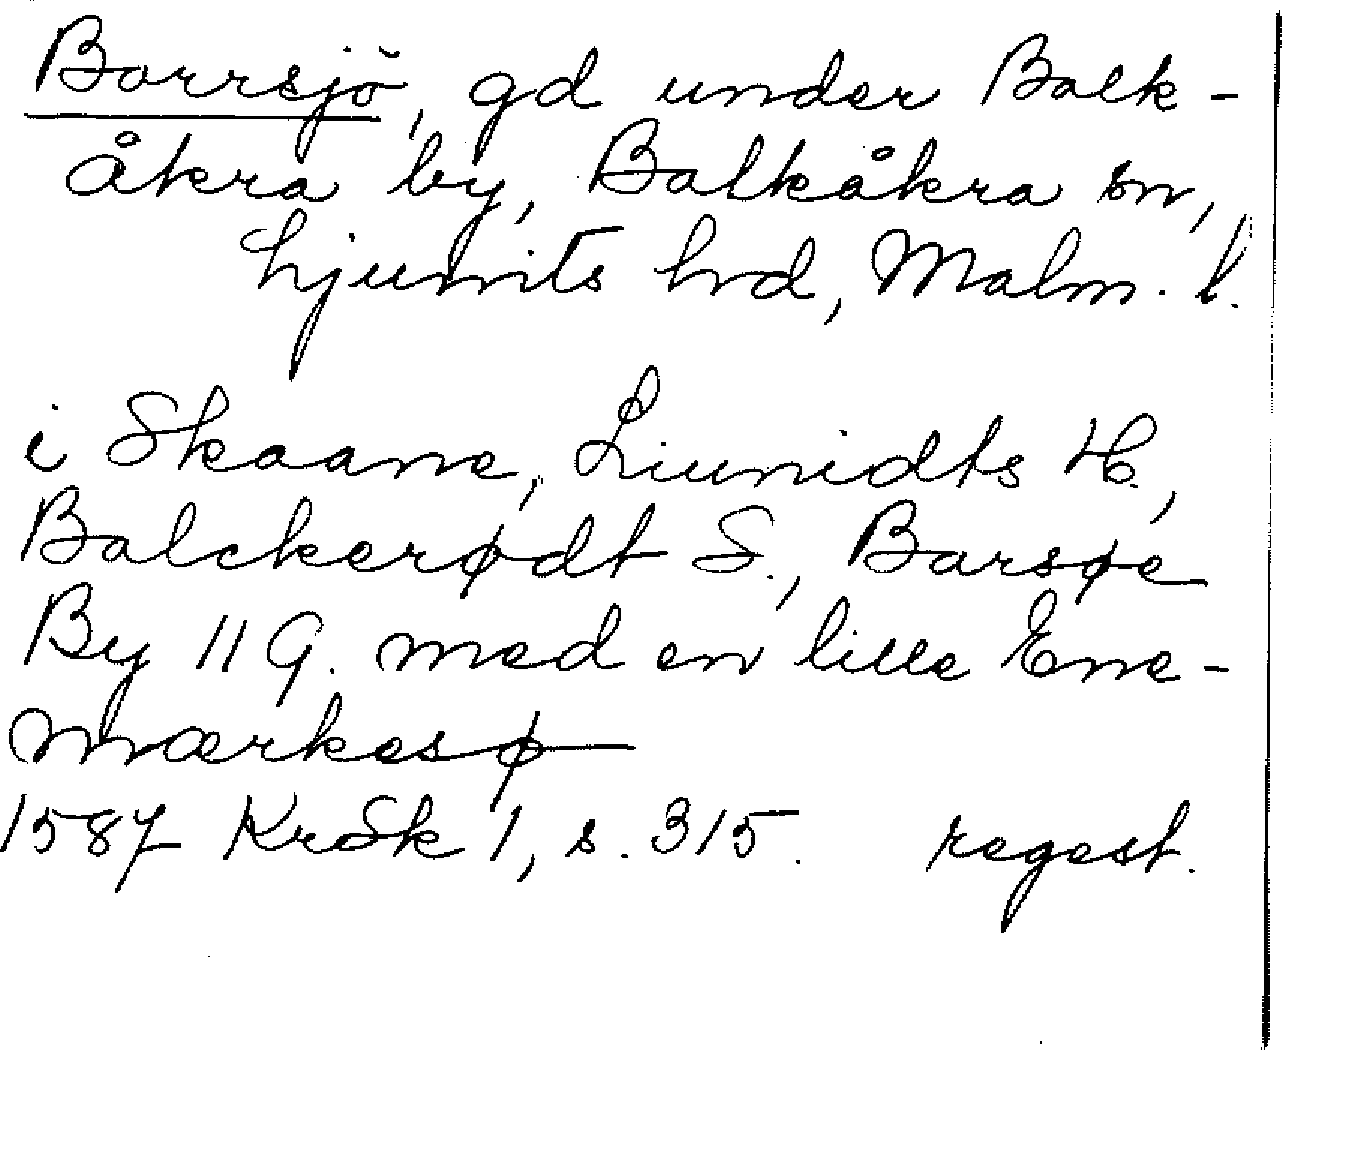 Borrsjö, gd under Balk-
åkra by, Balkåkra sn,
Ljunits hrd, Malm. l.
i Skaane, Liunidts H.,
Balckerødt S., Barsøe
By 11 G. med en lille Ene-
mærkesø
1587 KrSk 1, s. 315. regest.